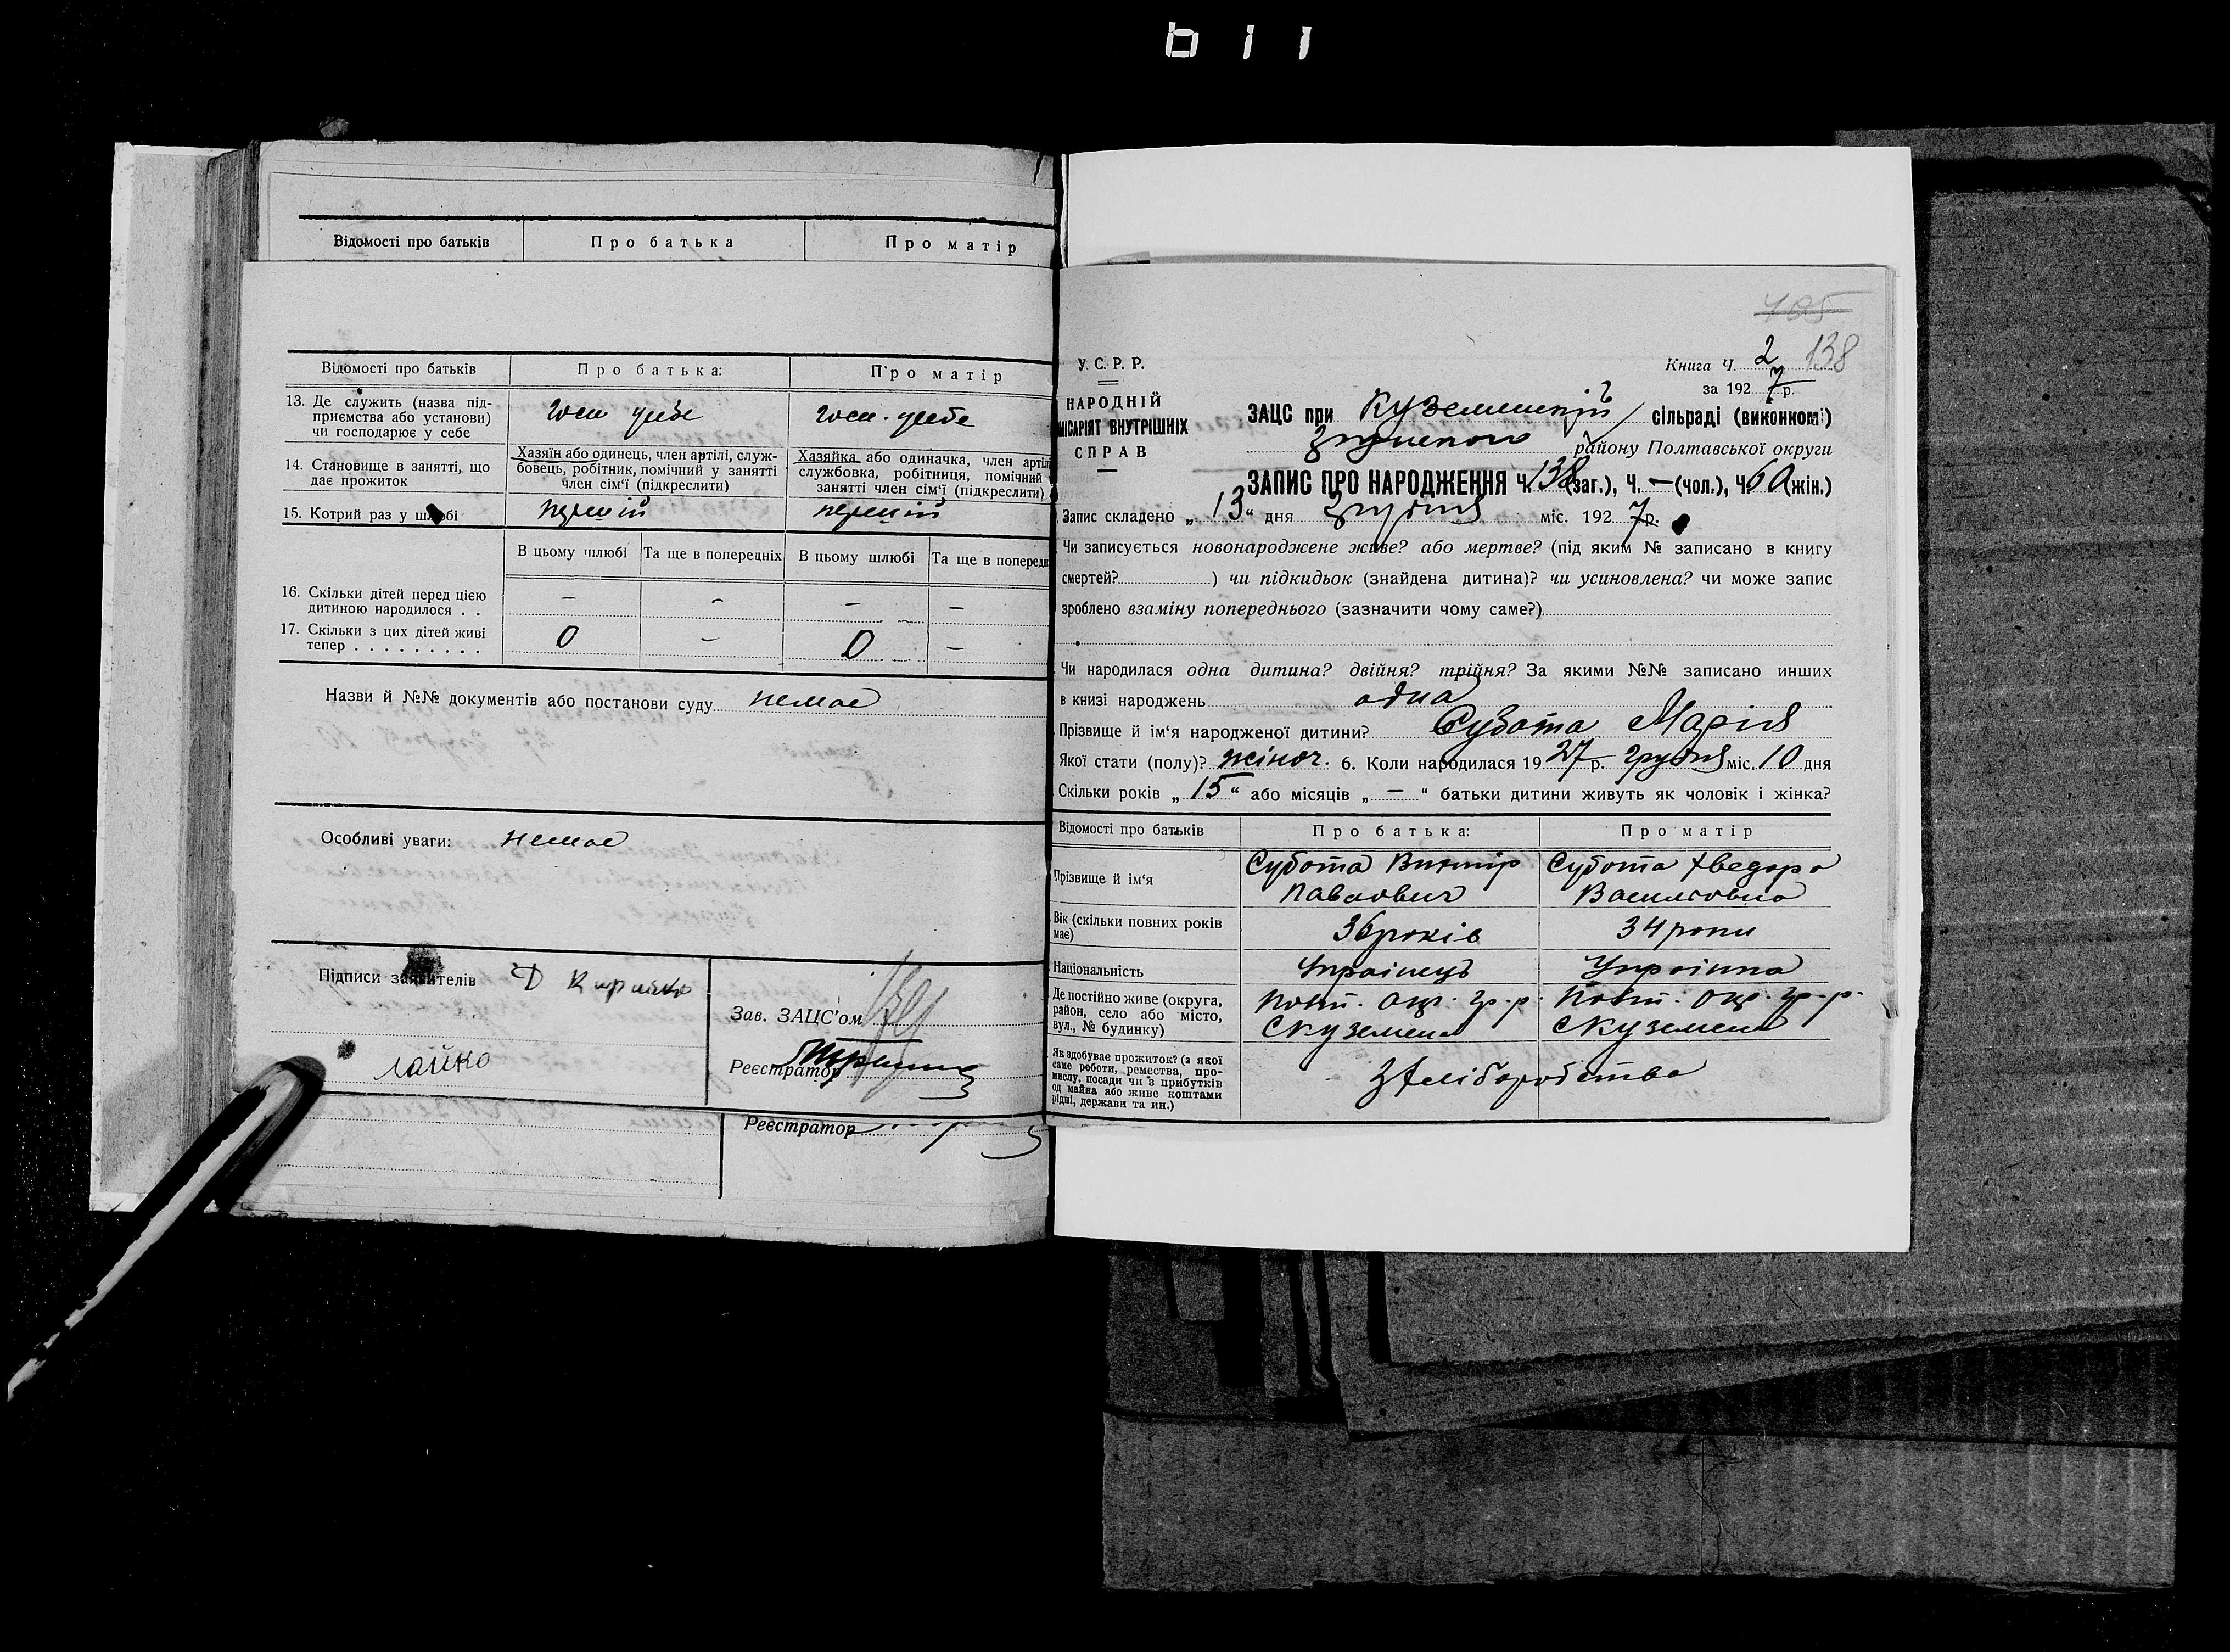 Відомості про батьків Про батька Про матір
Відомості про батьків Про батька: Про матір
13. Де служить (назва під-
приємства або установи)
чи господарює у себе
госп у себе госп. у себе
14. Становище в занятті, що
дає прожиток
Хазяїн або одинець, член артілі, служ-
бовець, робітник, помічний у занятті
член сім'ї (підкреслити)
Хазяйка або одиначка, член артіл
службовка, робітниця, помічний
занятті член сім'ї (підкреслити)
15. Котрий раз у шлюбі перший перший
В цьому шлюбі Та ще в попередніх В цьому шлюбі Та ще в попередн
16. Скільки дітей перед цією
дитиною народилося . . – – – –
17. Скільки з цих дітей живі
тепер . . . . . . . . . 0 – 0 –
Назви й №№ документів або постанови суду немає
Особливі уваги: немає
Підписи заявителів
Зав. ЗАЦС'ом
Реєстратор
Реєстратор
465
У.С.Р.Р. Книга Ч. 2 138
за 1927 р.
НАРОДНІЙ
МІСАРІЯТ ВНУТРІШНІХ
СПРАВ
ЗАЦС при Куземинській сільраді (виконкомі)
району Полтавської округи
ЗАПИС ПРО НАРОДЖЕННЯ Ч. 138 (заг.), Ч. — (чол.), Ч. 60 (жін.)
Запис складено „13“ дня грудня міс. 1927 р.
Чи записується новонароджене живе? або мертве? (під яким № записано в книгу
смертей? ) чи підкидьок (знайдена дитина)? чи усиновлена? чи може запис
зроблено взаміну попереднього (зазначити чому саме?)
Чи народилася одна дитина? двійня? трійня? За якими №№ записано инших
в книзі народжень одна
Прізвище й ім'я народженої дитини? Субота Марія
Якої стати (полу)? жіноч. 6. Коли народилася 1927 р. грудня міс. 10 дня
Скільки років „15“ або місяців „—“ батьки дитини живуть як чоловік і жінка?
Відомості про батьків Про батька: Про матір
Прізвище й ім'я
Субота Виктір Субота Хведора
Павлович Василівна
Вік (скільки повних років
має)
36 років 34 роки
Національність Українець Українка
Де постійно живе (округа,
район, село або місто,
вул., № будинку)
Полт. окр. Гр. р. Полт. окр. Гр. р.
с Куземени с Куземени
Як здобуває прожиток? (з якої
саме роботи, ремества, про-
мислу, посади чи з прибутків
од майна або живе коштами
рідні, держави та ин.)
З хліборобства